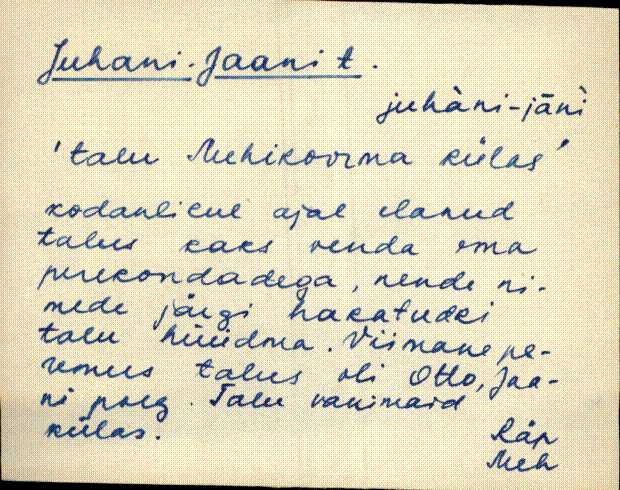 Juhani-Jaani t.
juhàni-jāǹi
'talu Mehikoorma külas'
kodanlikul ajal elanud
talus kaks venda oma
perekondadega, nende ni-
mede järgi hakatudki
talu hüüdma. Viimane pe-
remees talus oli Otto, Jaa-
ni poeg. Talu vanimaid
külas.
Räp
Meh